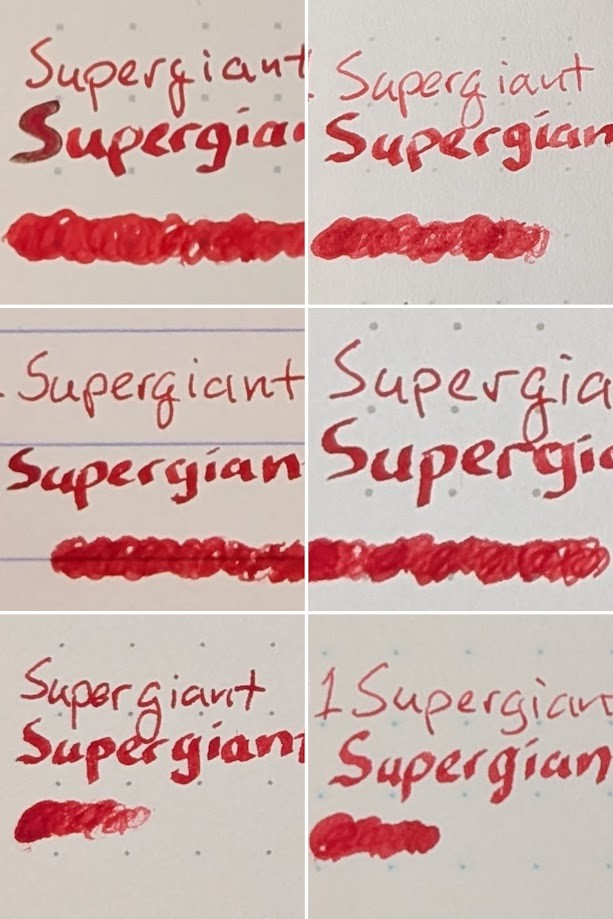 Supergiant
Supergia
Supergiant
Supergian
Supergiant
Supergian
Supergia
Supergi
Supergiant
Supergian
1 Supergian
Supergian